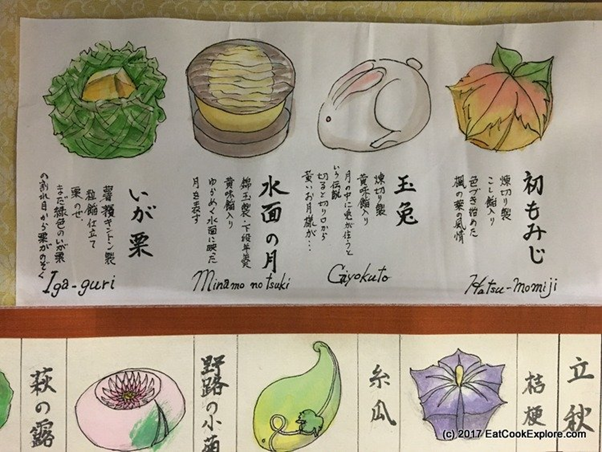 初もみじ
煉切り製
こし餡入り
色づき始めた
楓の葉の風情
Hatsu-momiji
玉兎
煉切り製
黄味餡入り
月の中に兎が住うと
いう伝説
切ると切り口から
黄いお月様が…
Giyokuto
水面の月
錦玉製・下段羊羹
黄味餡入り
ゆらめく水面に映った
月を表す
Minamo no tsuki
いが栗
薯蕷キントン製
粒餡仕立て
栗のせ、
まだ緑色のいが栗
の割れ目から栗がのぞく
Iga-guri
立秋
桔梗
糸瓜
野路の小菊
萩の露
(c) 2017 EatCookExplore.com